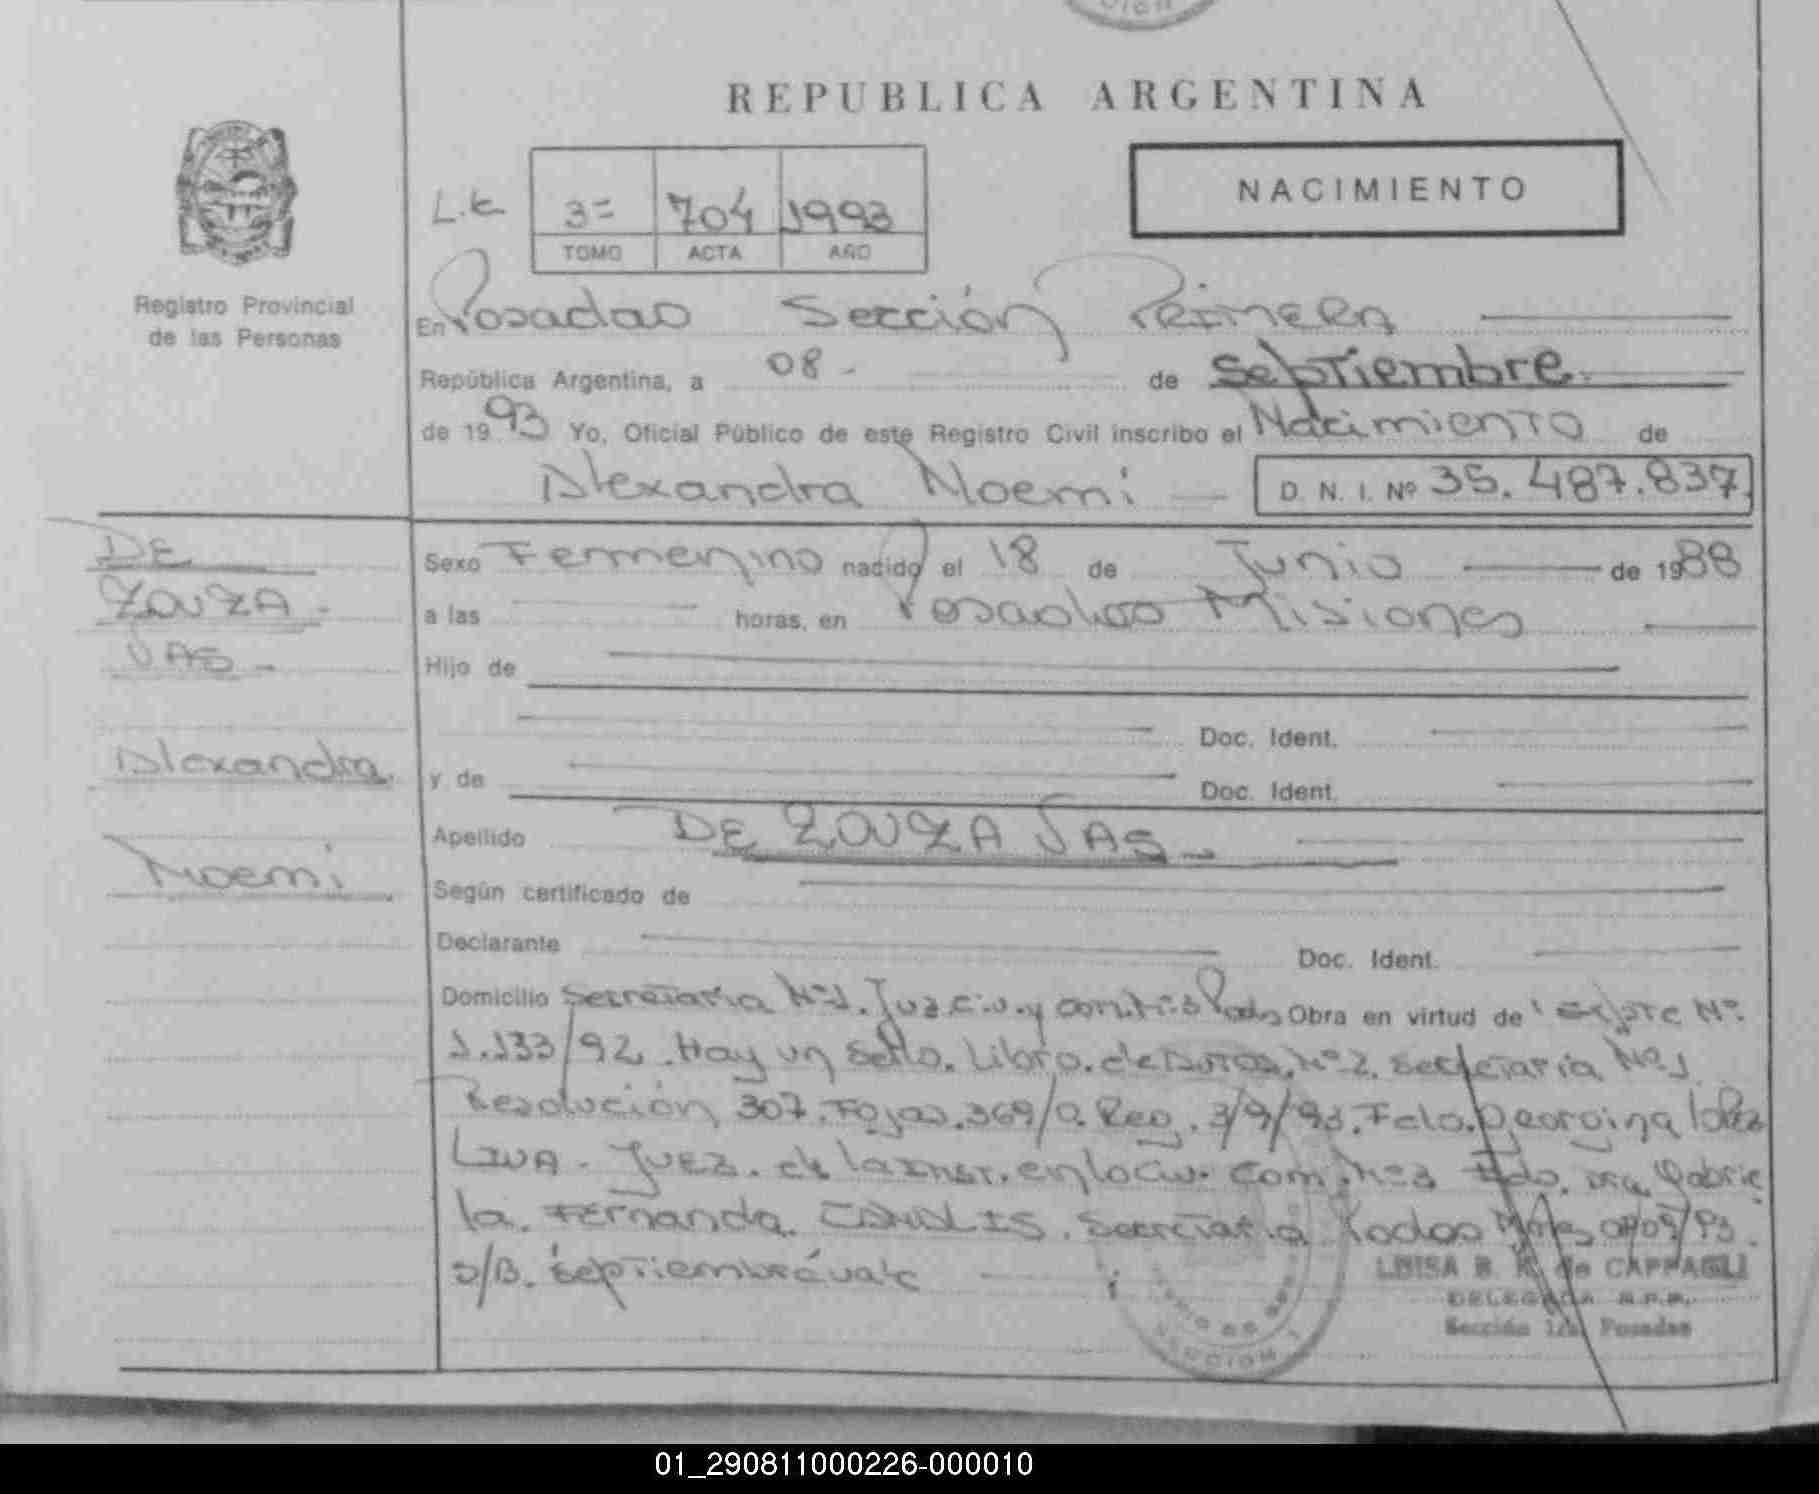 REPUBLICA ARGENTINA
NACIMIENTO
L.E 3= 704 1993
TOMO ACTA AÑO
Registro Provincial
de las Personas
En Posadas Sección Primera
República Argentina, a 08- de Septiembre
de 1993 Yo, Oficial Público de este Registro Civil inscribo el Nacimiento de
Alexandra Noemi D. N. I. Nº 35.487.837
DE
ZOUZA
JAS-
Alexandra
Noemi
Sexo Femenino nacido el 18 de Junio de 1988
a las horas, en Posadas Misiones
Hijo de
Doc. Ident.
y de Doc. Ident.
Apellido DE ZOUZA JAS-
Según certificado de
Declarante Doc. Ident.
Domicilio Secretaria Nº1. Juz. Civ. y Com. Nº3 Pdas Obra en virtud de Expte Nº
1.133/92. Hay un sello. Libro. de Nº2. Secretaría Nº1
Resolución 307. Fojas. 369/ Reg. 3/9/93. Fdo. Georgina López
Juez. de la Inst. en lo Civ. Com. Nº3 Fdo. Dra. Gabrie
la. Fernanda. Secretaria
S/B. Septiembre vale
LUISA B. K. de CAPPAGLI
DELEGADA R.P.P.
Sección 1ra. Posadas
SECCION 1
01_290811000226-000010